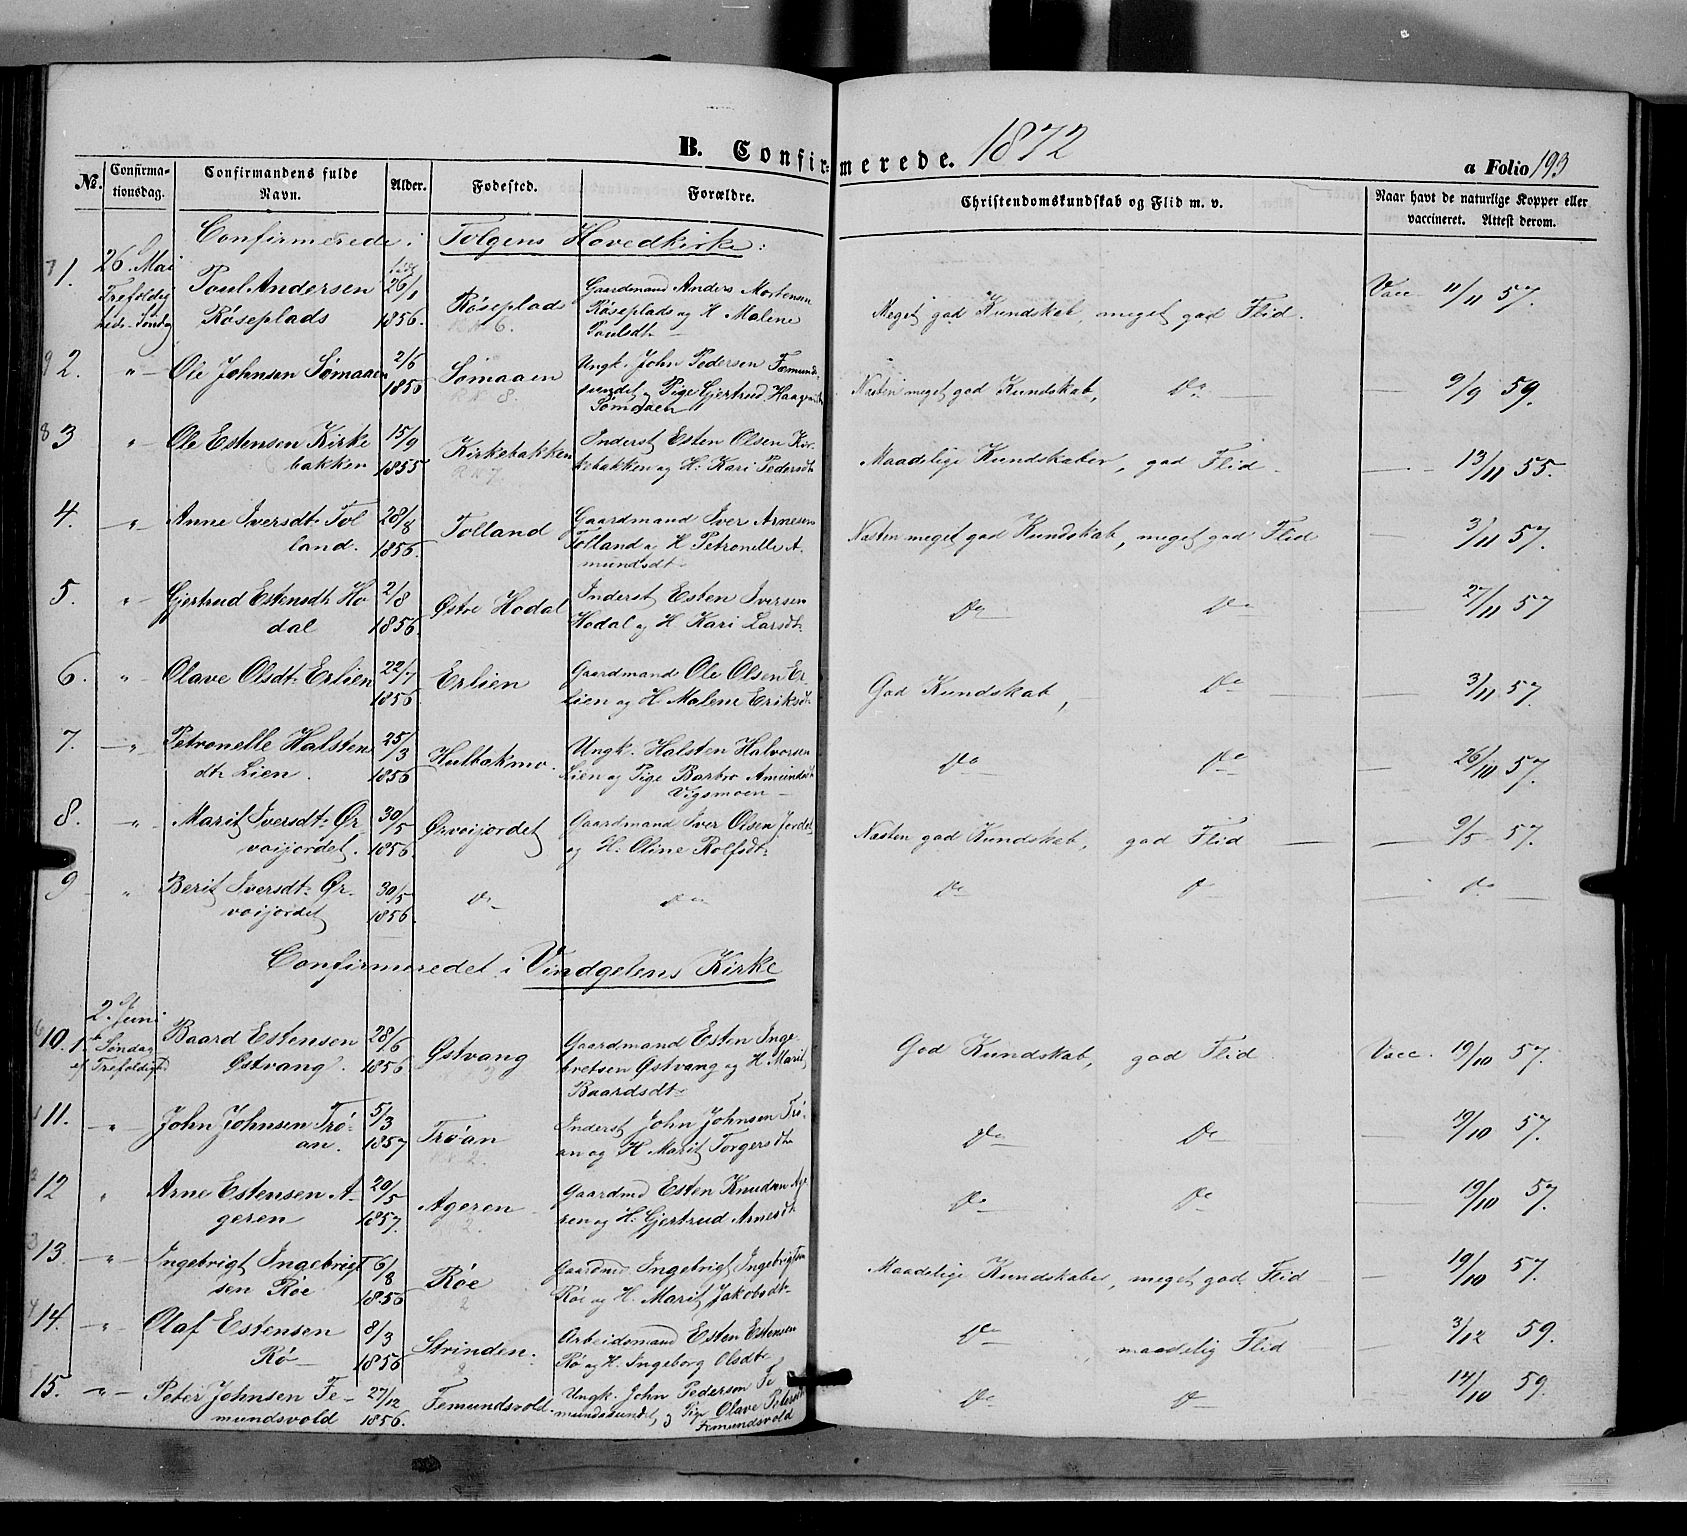 B. Confirmerede. 1872
a Folio 193
No. Confirmationsdag. Confirmandens fulde Navn. Alder. Fødested. Forældre. Christendomskundskab og Flid m. v. Naar havt de naturlige Kopper eller vaccineret. Attest derom.
Confirmerede i Tolgens Hovedkirke:
1. 26. Mai Poul Andersen 26/1 Røseplads Gaardmand Anders Mortensen Meget god Kundskab, meget god Flid. Vacc. 11/11 57.
Trefoldig Røseplads 1856. Røseplads og H. Malene
heds-Søndag Paulsdt.
2. " Ole Johnsen Sømaaen 2/6 Sømaaen Ungk. John Pedersen Fæmund- Næsten meget god Kundskab, Do 9/9 59.
1856 sundet og Pige Gjertrud Haagensdt
Sømaaen
3 " Ole Estensen Kirke 15/9 Kirkebakken Inderst Esten Olsen Kir- Maadelige Kundskaber, god Flid. 13/11 55.
bakken 1855 kebakken og H. Kari Pedersdt
4. " Anne Iversdt. Tol 28/8 Tolland Gaardmand Iver Arnesen Næsten meget god Kundskab, meget god Flid 3/11 57.
land. 1856. Tolland og H. Petronelle A-
mundsdt.
5. " Gjertrud Estensdt. Ho 2/8 Østre Hodal Inderst Esten Iversen Do Do 27/11 57
dal 1856. Hodal og H. Kari Larsdt.
6. " Olave Olsdt. Erlien 22/7 Erlien Gaardmand Ole Olsen Er- God Kundskab, Do 3/11 57.
1856. lien og H. Malene Eriksdt.
7. " Petronelle Halsten 25/3 Hulbakmo. Ungk. Halsten Halvorsen Do Do 26/10 57.
dt. Lien. 1856 Lien og Pige Barbro Amundsdt
Vigsmoen
8. " Marit Iversdt. Ør 30/5 Ørvoijordet Gaardmand Iver Olsen Jordet Næsten god Kundskab, god Flid 9/5 57.
voijordet. 1856. og H. Oline Rolfsdt.
9 " Berit Iversdt. Ør- 30/5 Do Do Do Do Do
voijordet 1856.
Confirmeredet i Vindgelens Kirke
2. Juni
10. 1ste Søndag Baard Estensen 28/6 Østvang Gaardmand Esten Inge- God Kundskab, god Flid Vacc. 19/10 57.
ef Trefoldighed Østvang. 1856 bretsen Østvang og H. Marit
Baardsdt.
11. " John Johnsen Trø- 5/3 Trøan Inderst John Johnsen Trø- Do Do 19/10 57.
an. 1857 an og H. Marit Torgersdt
12 " Arne Estensen A- 20/5 Ageren Gaardmd Esten Knudsen Age Do Do 19/10 57.
geren 1857. ren og H. Gjertrud Arnesdt
13. " Ingebrigt Ingebrigt 6/8 Røe Gaardmd Ingebrigt Ingebrigtsen Maadelige Kundskaber, meget god Flid 19/10 57.
sen Røe 1856 Røe og H. Marit Jakobsdt.
14. " Olaf Estensen 8/3 Strinden. Arbeidsmand Esten Estensen Do maadelig Flid 3/12 59.
Rø 1856 Rø og H. Ingeborg Olsdt.
15. " Peter Johnsen Fe- 27/12 Femundsvold. Ungk. John Pedersen Fe Do Do 14/10 59.
mundsvold 1856. mundssundet, og Pige Olave Petersdt
Femundsvold